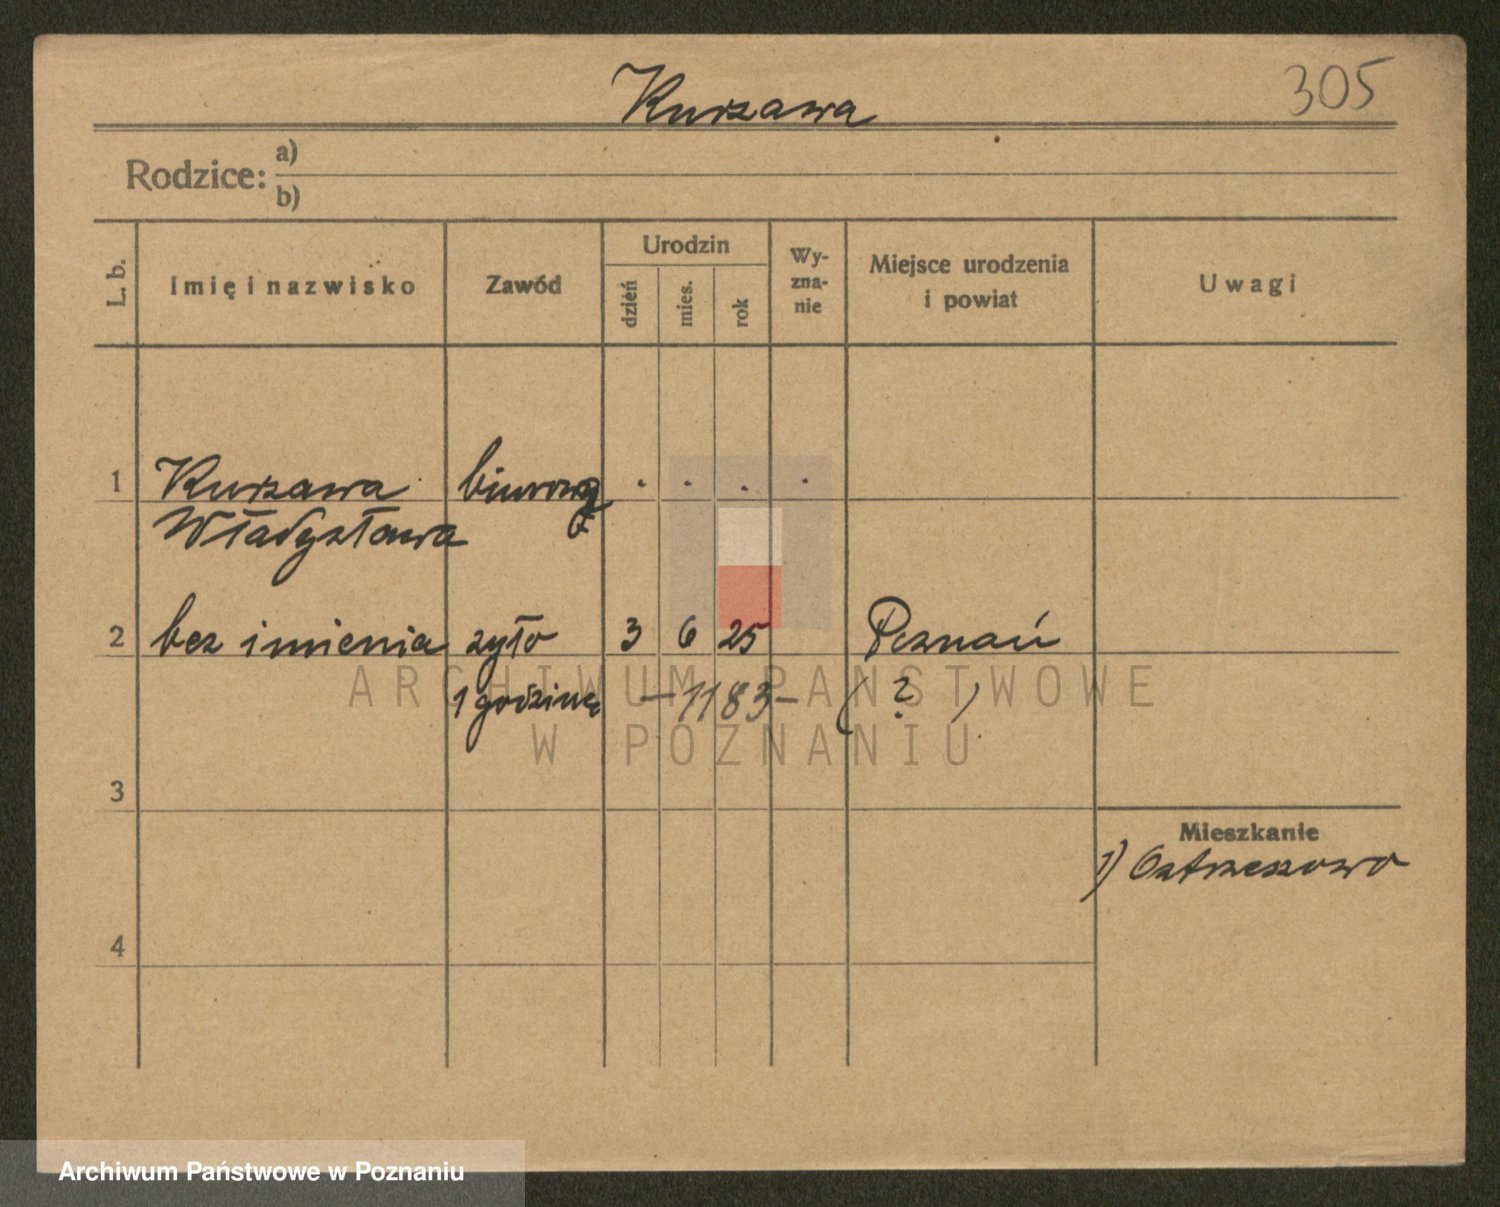 Kurzawa
305
Rodzice: a)
b)
L. b.
Imię i nazwisko
Zawód
Urodzin
dzień
mies.
rok
Wy-
zna-
nie
Miejsce urodzenia
i powiat
Uwagi
1 Kurzawa
Władysława
2 bez imienia żyło 3 6 25 Poznań
1 godzinę – 1183 – ( ? )
ARCHIWUM PAŃSTWOWE
W POZNANIU
3
Mieszkanie
1) Ostrzeszowo
4
Archiwum Państwowe w Poznaniu